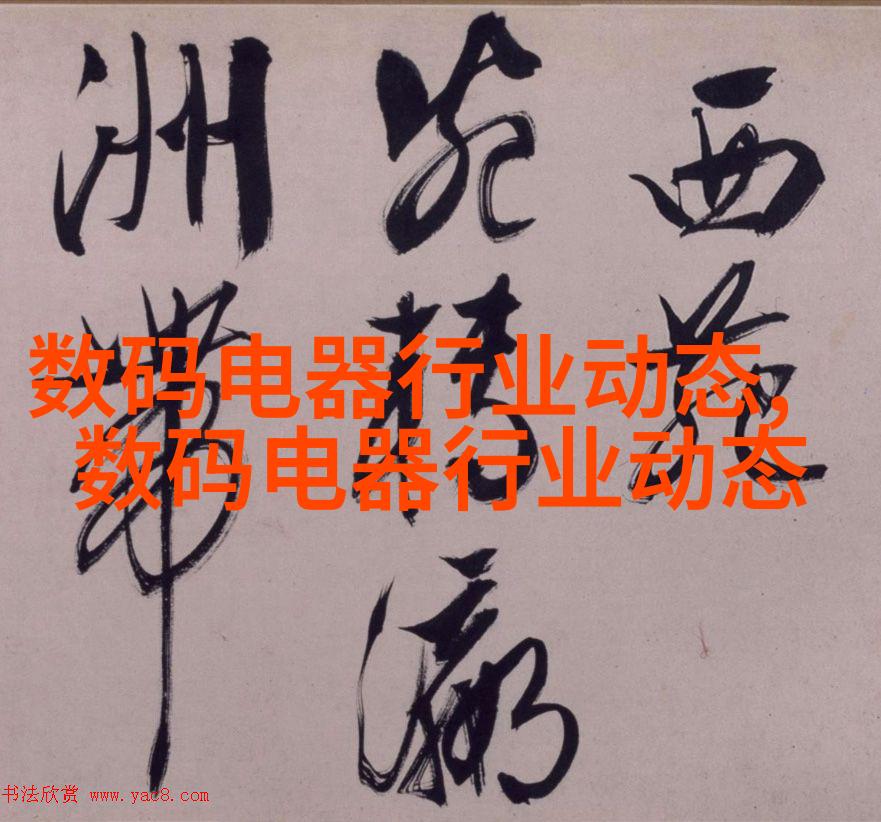 数码电器行业动态,
数码电器行业动态
西苑
瀛
洲
书法欣赏 www.yac8.com